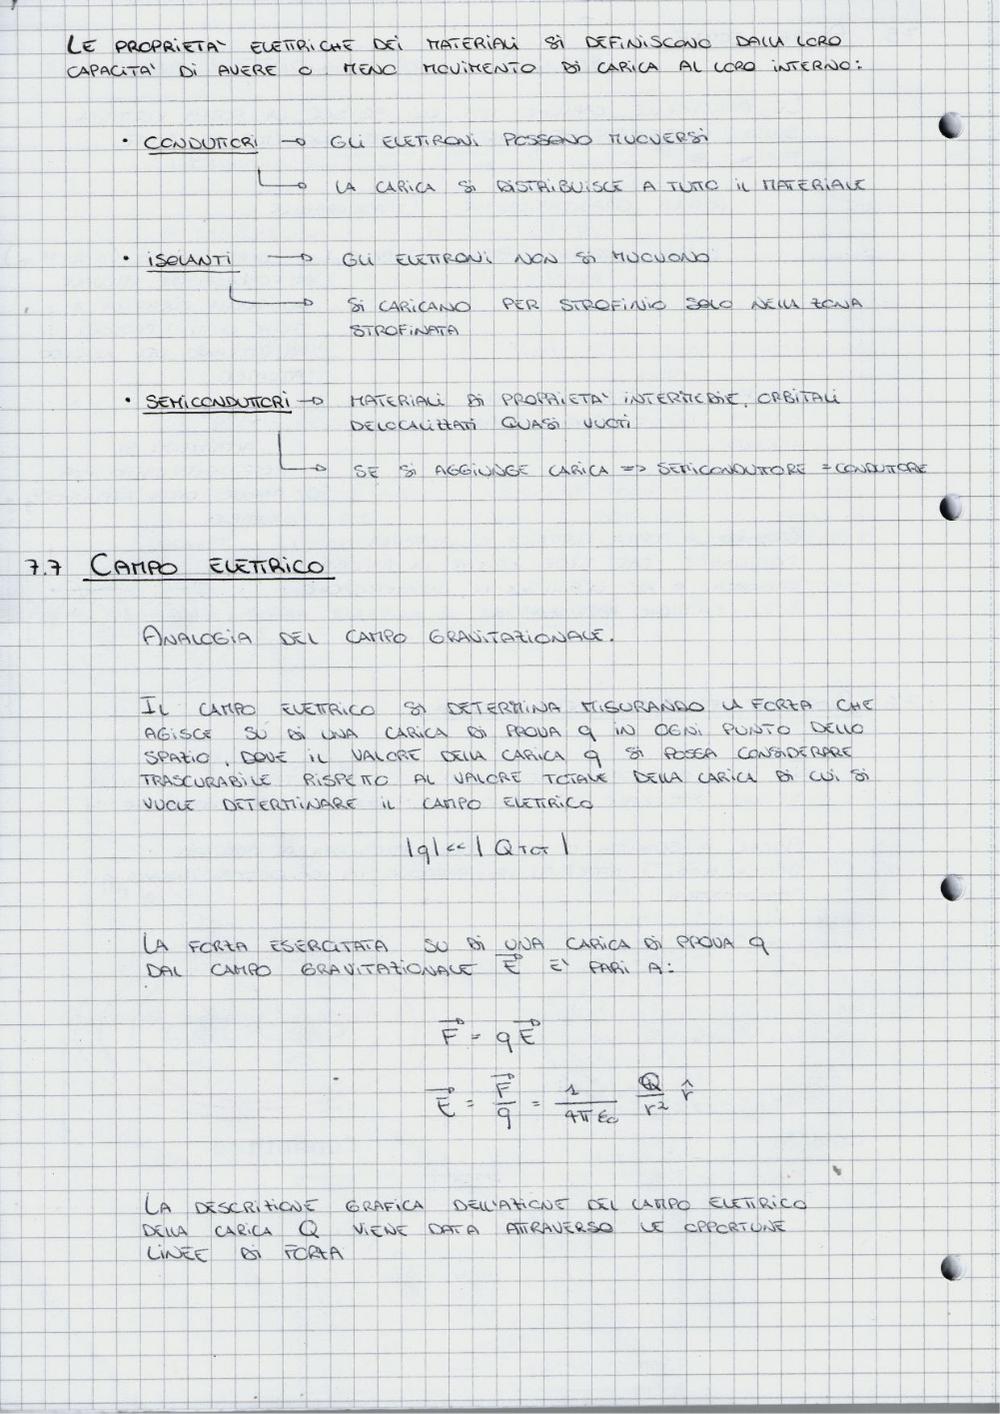 LE PROPRIETA' ELETTRICHE DEI MATERIALI SI DEFINISCONO DALLA LORO
CAPACITA' DI AVERE O MENO MOVIMENTO DI CARICA AL LORO INTERNO:
• CONDUTTORI → GLI ELETTRONI POSSONO MUOVERSI
→ LA CARICA SI DISTRIBUISCE A TUTTO IL MATERIALE
• ISOLANTI → GLI ELETTRONI NON SI MUOVONO
→ SI CARICANO PER STROFINIO SOLO NELLA ZONA
STROFINATA
• SEMICONDUTTORI → MATERIALI DI PROPRIETA' INTERMEDIE, ORBITALI
DELOCALIZZATI QUASI VUOTI
→ SE SI AGGIUNGE CARICA => SEMICONDUTTORE = CONDUTTORE
7.7 CAMPO ELETTRICO
ANALOGIA DEL CAMPO GRAVITAZIONALE.
IL CAMPO ELETTRICO SI DETERMINA MISURANDO LA FORZA CHE
AGISCE SU DI UNA CARICA DI PROVA q IN OGNI PUNTO DELLO
SPAZIO, DOVE IL VALORE DELLA CARICA q SI POSSA CONSIDERARE
TRASCURABILE RISPETTO AL VALORE TOTALE DELLA CARICA DI CUI SI
VUOLE DETERMINARE IL CAMPO ELETTRICO
|q| << |Q TOT|
LA FORZA ESERCITATA SU DI UNA CARICA DI PROVA q
DAL CAMPO GRAVITAZIONALE E⃗ E' PARI A:
F⃗ = qE⃗
E⃗ = F⃗/q = 1/(4πε₀) Q/r² r̂
LA DESCRIZIONE GRAFICA DELL'AZIONE DEL CAMPO ELETTRICO
DELLA CARICA Q VIENE DATA ATTRAVERSO LE OPPORTUNE
LINEE DI FORZA